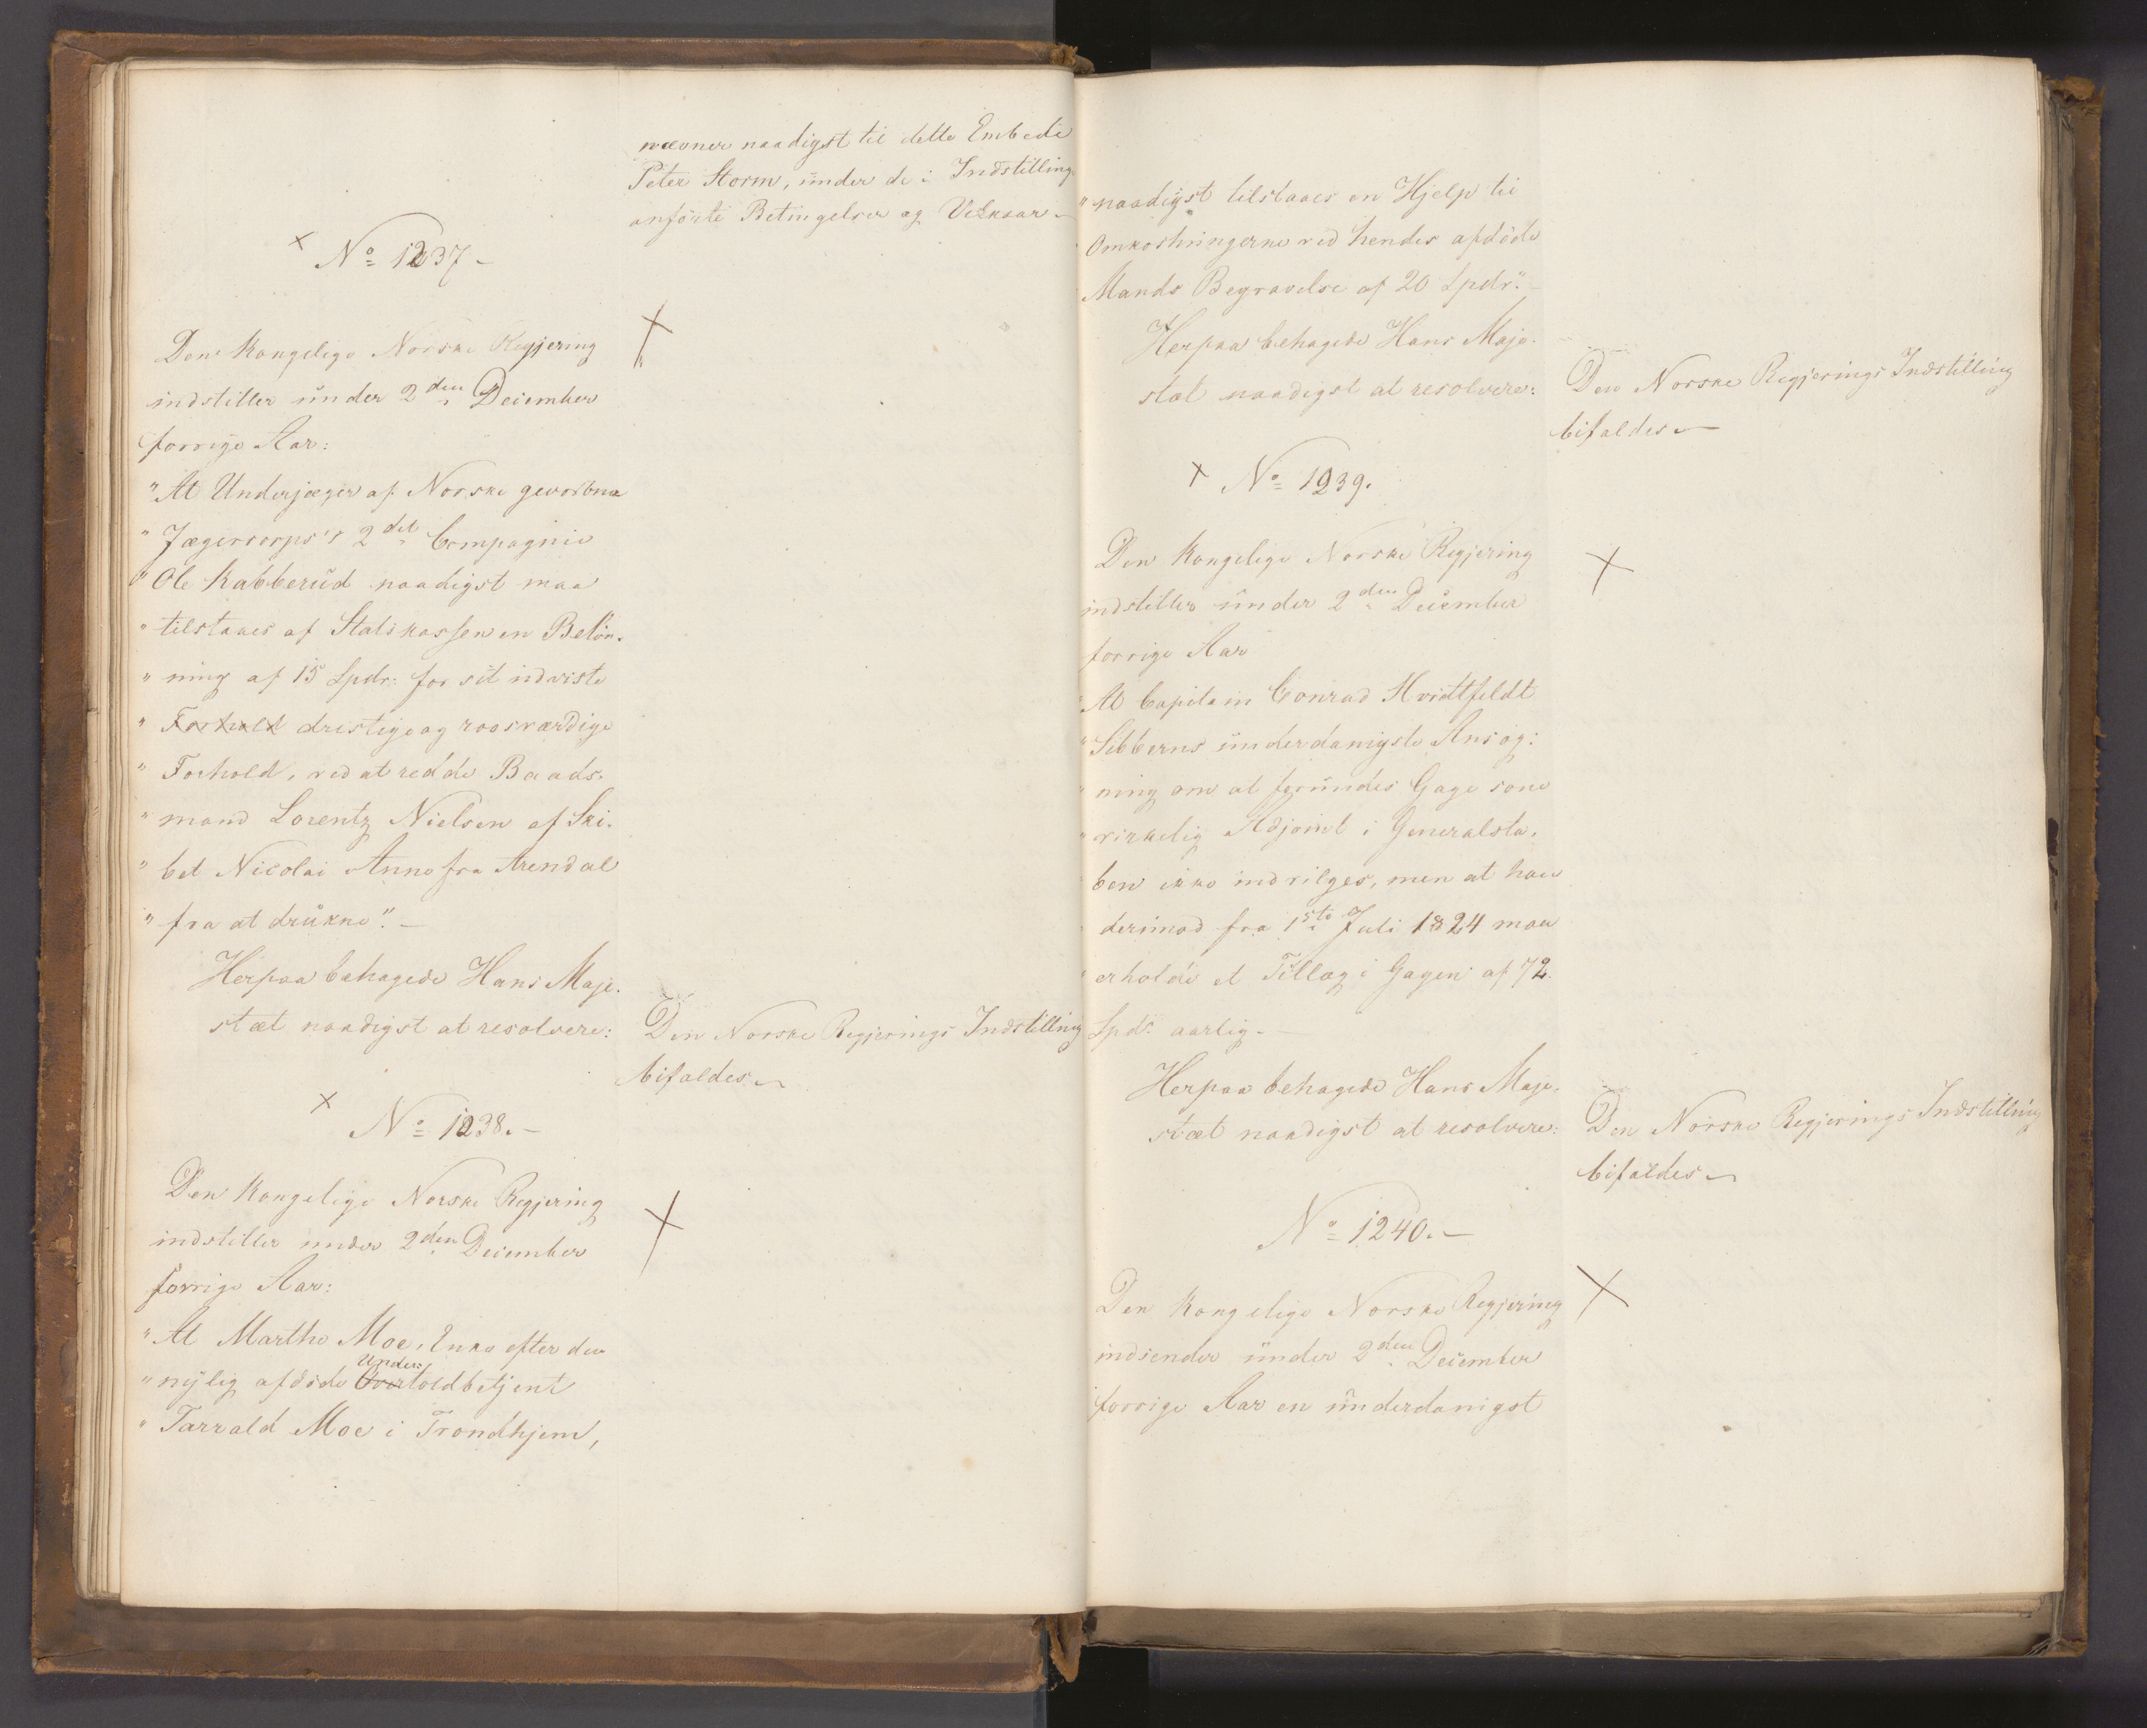 nævner naadigst til dette Embede
Peter Storm, under de i Indstilling
anførte Betingelser og Vilkaar
× No 1237
Den Kongelige Norske Regjering
indstiller under 2den December
forrige Aar:
"At Underjæger af Norske gevorbne
" Jægercorps's 2det Compagnie
" Ole Kabberud naadigst maa
" tilstaaes af Statskassen en Beløn-
" ning af 15 Spdr: for sit udviste
" Forhold dristige og roesværdige
" Forhold, ved at redde Baads-
" mand Lorentz Nielsen af Ski-
" bet Nicolai Anne fra Arendal
" fra at drukne". —
Herpaa behagede Hans Maje-
stæt naadigst at resolvere:
Den Norske Regjerings Indstilling
bifaldes
× No 1238. —
Den Kongelige Norske Regjering
indstiller under 2den December
forrige Aar:
"At Marthe Moe, Enke efter den
" nylig afdøde Over Under toldbetjent
" Tarrald Moe i Trondhjem,
" naadigst tilstaaes en Hjelp til
Omkostningerne ved hendes afdøde
Mands Begravelse af 20 Spdr". —
Herpaa behagede Hans Maje-
stæt naadigst at resolvere:
Den Norske Regjerings Indstilling
bifaldes —
× No 1239.
Den Kongelige Norske Regjering
indstiller under 2den December
forrige Aar
"At Capitain Conrad Hvidtfeldt
" Sibberns underdanigste Ansøg:
" ning om at forundes Gage som
" virkelig Adjoint i Generalsta-
" ben ikke indvilges, men at han
" derimod fra 1ste Juli 1824 maa
" erholde et Tillæg i Gagen af 72
Spdr aarlig. —
Herpaa behagede Hans Maje-
stæt naadigst at resolvere:
Den Norske Regjerings Indstilling
bifaldes
No 1240. —
Den Kongelige Norske Regjering
indsender under 2den December
forrige Aar en underdanigst